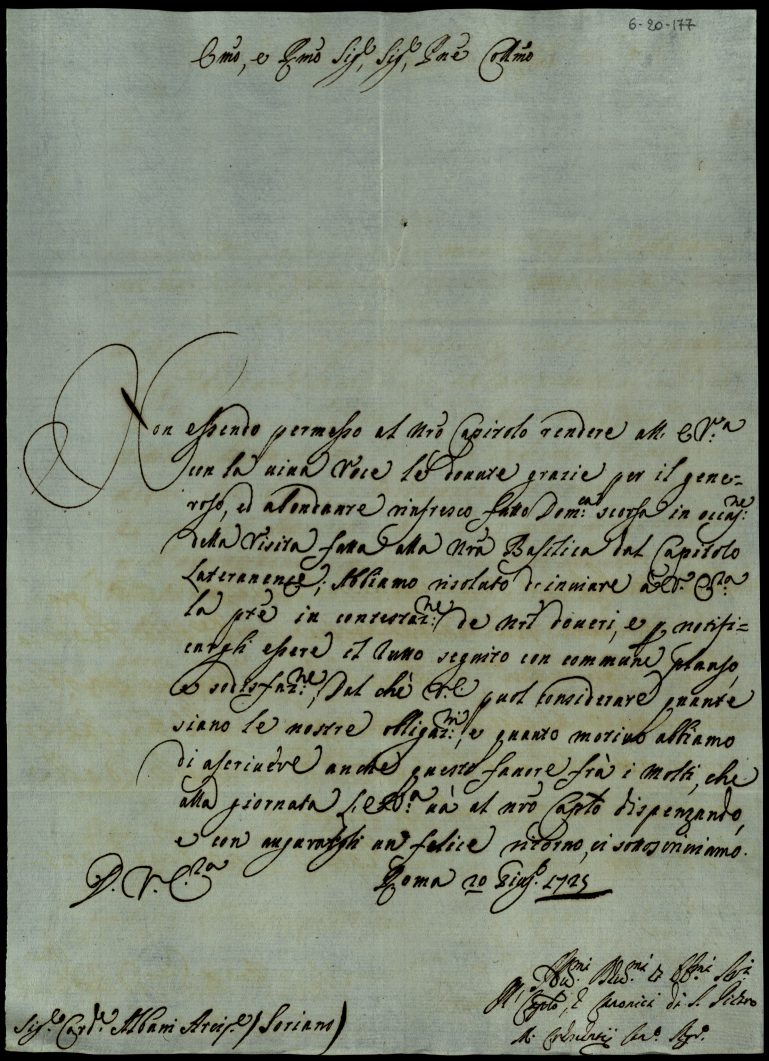 6-20-177
Emo, e Rmo Sigre, Sigre, Pne Colmo
Non essendo permesso al nrō Capitolo rendere all' E.Vra
con la viua Voce le douute grazie per il gene=
roso, ed abondante rinfresco fatto Domca scorsa in occasne
della Visita fatta alla Nrā Basilica dal Capitolo
Lateranense, Abbiamo risoluto di inuiare a V. Eza
la pnte in contestazne de nrī doueri, e p notifi=
cargli essere il tutto seguito con commune plauso,
e sodisfazne, Dal chè V.E. puol considerare quante
siano le nostre obligazni, e quanto motiuo abbiamo
di ascriuere anche questo fauore frà i molti, che
alla giornata L'E.Vra uà al nrō Caplo dispenzando,
e con augurargli un felice ritorno, ci sottoscriuiamo.
D. V. Eza
Roma 20 Giugo 1725
Sigre Cardle Albani Arcipe (Soriano)
Il Caplo, e Canonici di S. Pietro